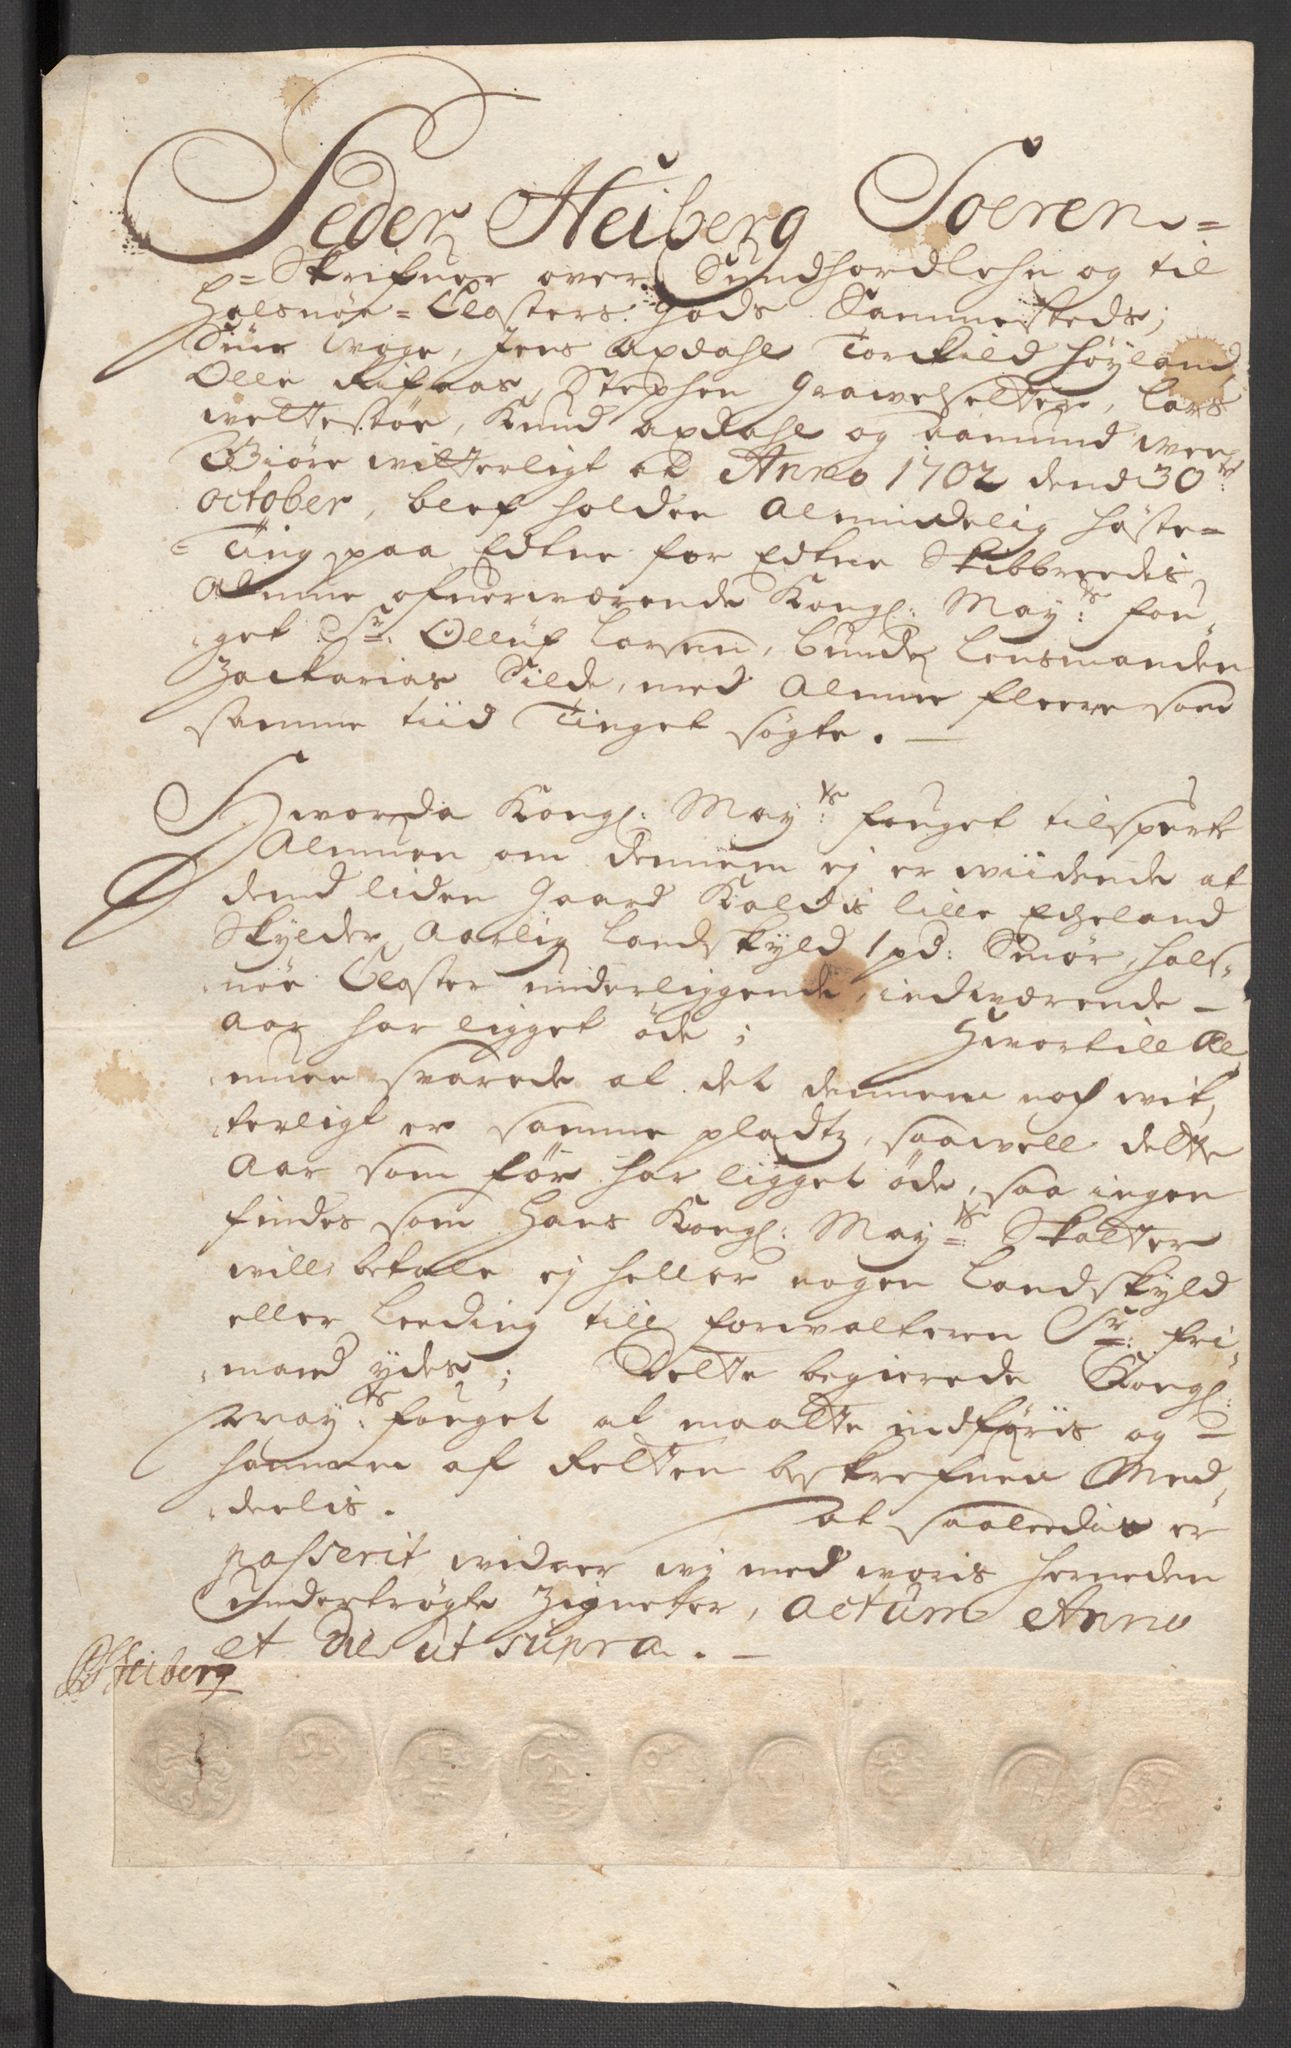 Peder Heiberg Soeren-
Skrifuer over Sundhordlehn og til
Halsnøe-Closters Gods Sammesteds;
Siur Wage, Jens Apdahl Torckild Høyland,
Olle Rifnaas, Stephen Grawelsetter, Lars
weltestøe, Knud apdahl og Aamund
Biøre witterligt at Anno 1702 dend 30te:
october, blef holden Almindelig høste-
Ting paa Edtne for Edtne Skibbredis
Almue ofuerwærende Kongl: Mayts: fou-
get Sr: Olluf Larsen, bunde Lensmanden
Zackarias Silde, med Almue fleere som
samme tiid Tinget søgte.
Hworda Kongl: Mayts: fouget tilspurte
Almuen om dennem ej er wiidende at
dend liden gaard Kaldis lille Echeland
Skylder Aarlig Landskyld 1 pd: Smør, hals-
nøe Closter underliggende, indwærende
Aar har ligget øde; Hwortill Al-
muen svarede at det dennem nok wit-
terligt er samme pladtz, saawell dette
Aar som før har ligget øde, saa ingen
findes som Hans Kongl: Mayts: Skatter
will betale ej heller nogen Landskyld
eller Leeding till forwalteren Sr: fri-
mand ydes; Dette begierede Kongl:
Mayts: fouget at maatte indføris og
hannem af Retten beskrefuen Med-
deelis. at saaleedis er
passerit, widner wi med woris herneden
undertrøgte Zigneter, Actum Anno
et Die ut supra.
PHeiberg